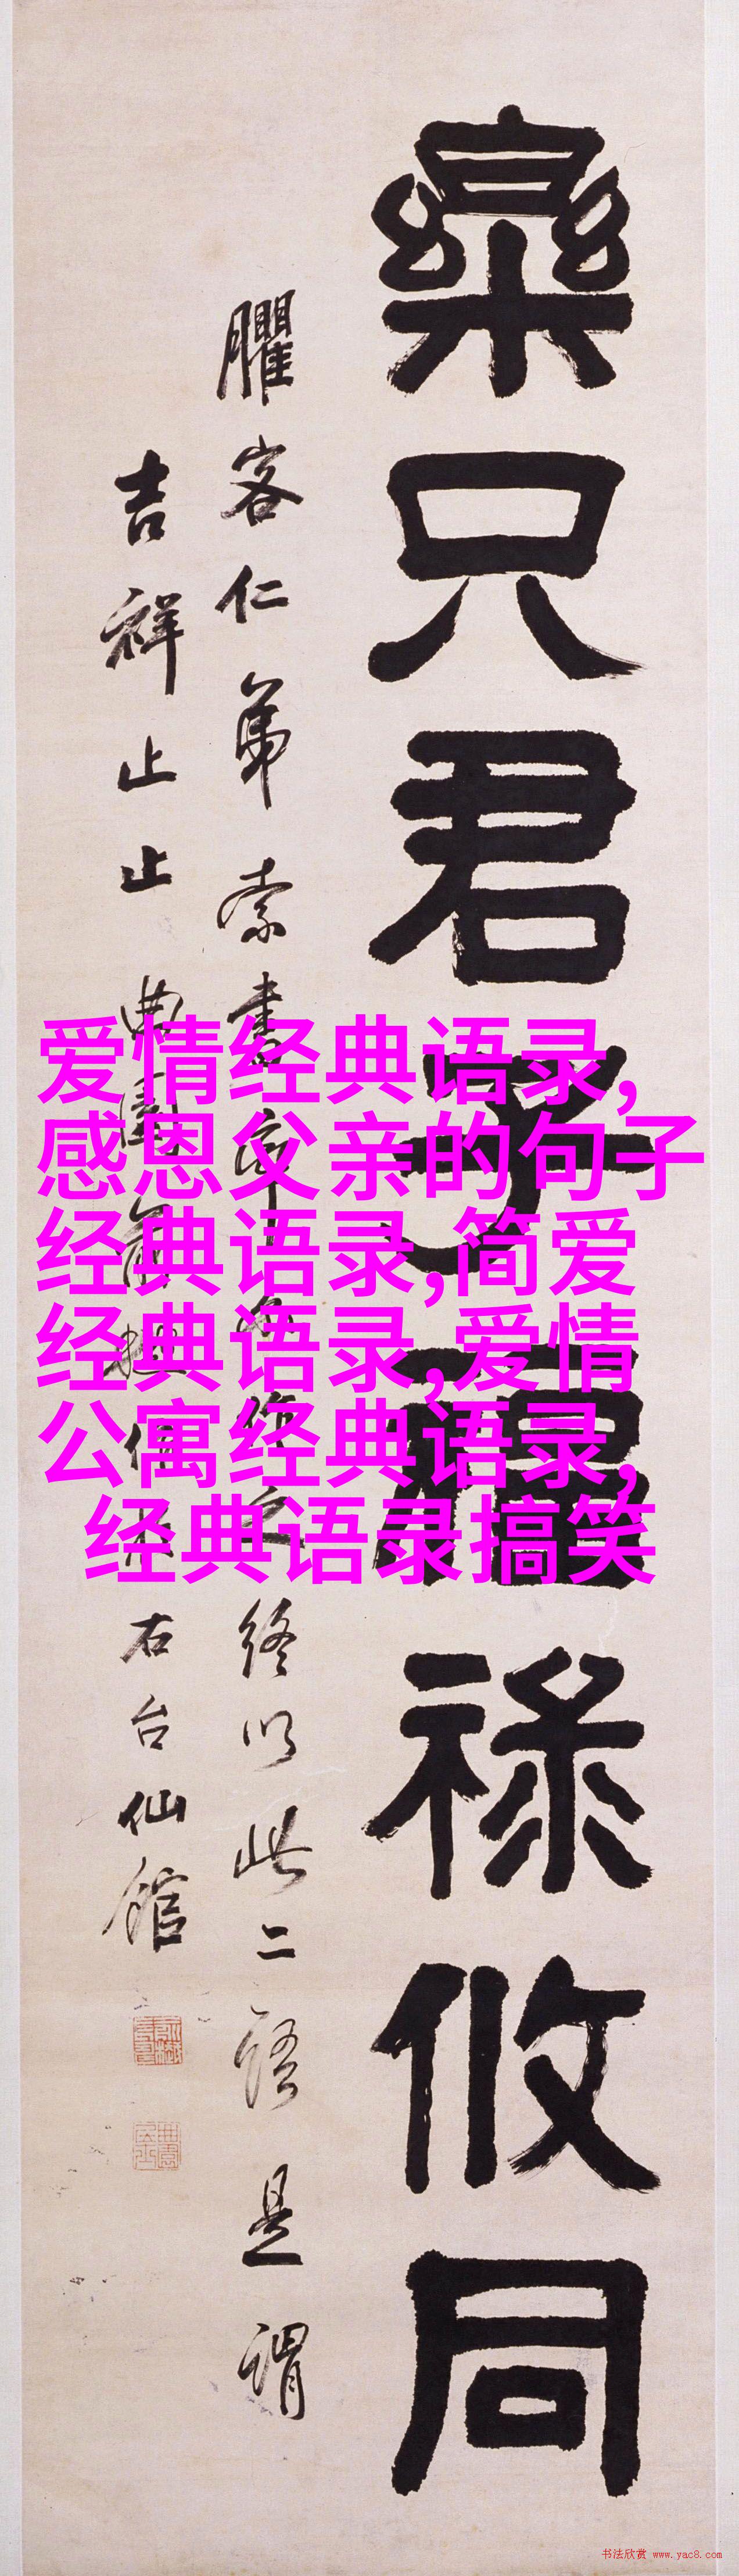 樂只君子福祿攸同
臞客仁弟索書終以此二語是謂
吉祥止止曲園俞樾右台仙館
爱情经典语录,
感恩父亲的句子
经典语录,简爱
经典语录,爱情
公寓经典语录,
经典语录搞笑
书法欣赏 www.yac8.com